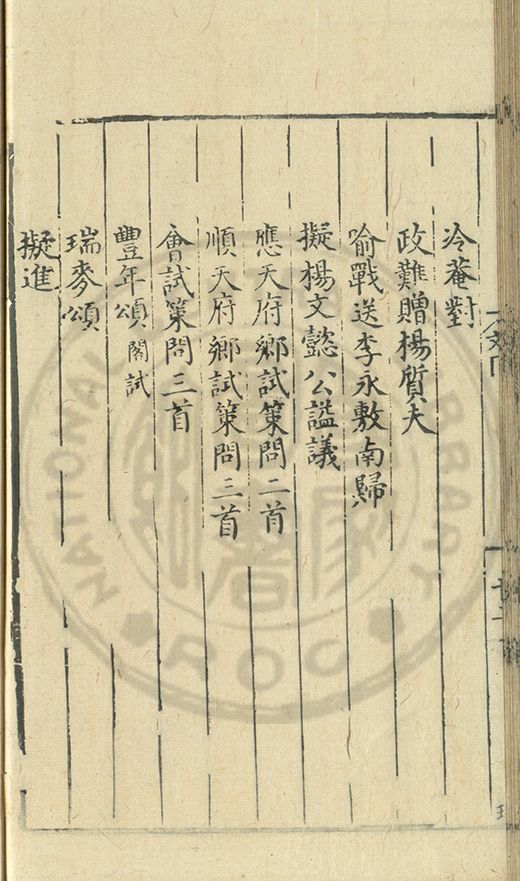 冷菴對
政難贈楊質夫
喻戰送李永敷南歸
擬楊文懿公謚議
應天府鄉試策問二首
順天府鄉試策問三首
會試策問三首
豐年頌 閣試
瑞麥頌
擬進